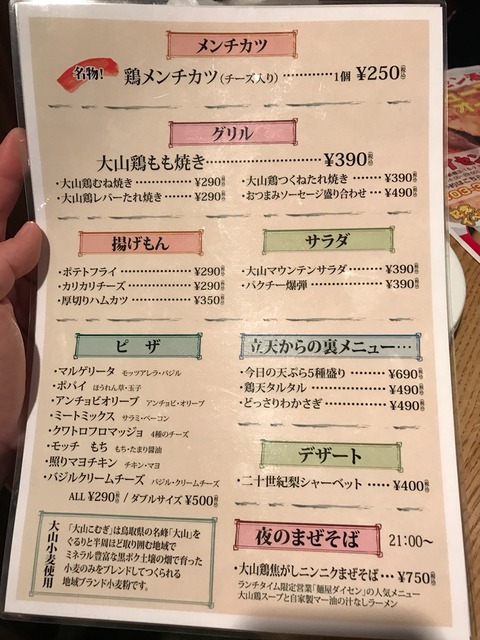 メンチカツ
名物!
鶏メンチカツ(チーズ入り)…………1個 ¥250(税込)
グリル
大山鶏もも焼き……………………¥390(税込)
・大山鶏むね焼き…………¥290(税込)
・大山鶏つくねたれ焼き……¥390(税込)
・大山鶏レバーたれ焼き……¥290(税込)
・おつまみソーセージ盛り合わせ…¥490(税込)
揚げもん
サラダ
・ポテトフライ……………¥290(税込)
・カリカリチーズ…………¥290(税込)
・厚切りハムカツ…………¥350(税込)
・大山マウンテンサラダ……¥390(税込)
・パクチー爆弾……………¥390(税込)
ピザ
・マルゲリータ モッツアレラ・バジル
・ポパイ ほうれん草・玉子
・アンチョビオリーブ アンチョビ・オリーブ
・ミートミックス サラミ・ベーコン
・クワトロフロマッジョ 4種のチーズ
・モッチ もち もち・たまり醤油
・照りマヨチキン チキン・マヨ
・バジルクリームチーズ バジル・クリームチーズ
ALL ¥290(税込) / ダブルサイズ ¥500(税込)
立天からの裏メニュー…
・今日の天ぷら5種盛り……¥690(税込)
・鶏天タルタル……………¥490(税込)
・どっさりわかさぎ………¥490(税込)
デザート
・二十世紀梨シャーベット……¥400(税込)
大山小麦使用
「大山こむぎ」は鳥取県の名峰「大山」を
ぐるりと半周ほど取り囲む地域で
ミネラル豊富な黒ボク土壌の畑で育った
小麦のみをブレンドしてつくられる
地域ブランド小麦粉です。
夜のまぜそば 21:00〜
・大山鶏焦がしニンニクまぜそば…¥750(税込)
ランチタイム限定営業「麺屋ダイセン」の人気メニュー
大山鶏スープと自家製マー油の汁なしラーメン